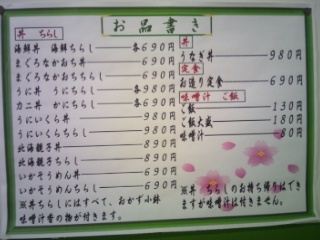 お品書き
丼 ちらし
海鮮丼 海鮮ちらし 各690円
まぐろなかおち丼 690円
まぐろなかおちちらし 690円
うに丼 うにちらし 各980円
カニ丼 かにちらし 各690円
うにいくら丼 890円
うにいくらちらし 890円
北海親子丼 890円
北海親子ちらし 890円
いかそうめん丼 690円
いかそうめんちらし 690円
※丼 ちらしにはすべて、おかず小鉢
味噌汁香の物が付きます。
丼
うなぎ丼 980円
定食
お造り定食 690円
味噌汁 ご飯
ご飯 130円
ご飯大盛 180円
味噌汁 80円
※丼 ちらしのお持ち帰りはで
きますが味噌汁は付きません。